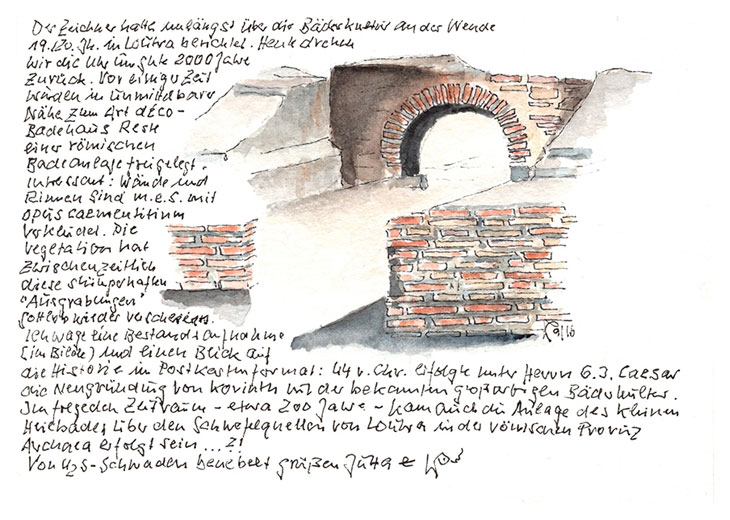 Der Zeichner hatte unlängst über die Bäderkultur an der Wende
19./20. Jh. in Loutra berichtet. Heute drehen
wir die Uhr um gute 2000 Jahre
zurück. Vor einiger Zeit
wurden in unmittelbarer
Nähe zum Art déco-
Badehaus Reste
einer römischen
Badeanlage freigelegt.
Interessant: Wände und
Rinnen sind m.e.S. mit
opus caementitium
verkleidet. Die
Vegetation hat
zwischenzeitlich
diese stümperhaften
"Ausgrabungen"
wieder
Ich wage eine Bestandsaufnahme
(im Bilde) und einen Blick auf
die Historie im Postkartenformat: 44 v. Chr. erfolgte unter Herrn G. J. Caesar
die Neugründung von Korinth mit der bekannten großartigen Bäderkultur.
Im Zeitraum - etwa 200 Jahre - kam auch die Anlage des kleinen
Heilbades über den Schwefelquellen von Loutra in der römischen Provinz
Achaea erfolgt sein ... ?!
Von H2S-Schwaden benebelt grüßen Jutta &